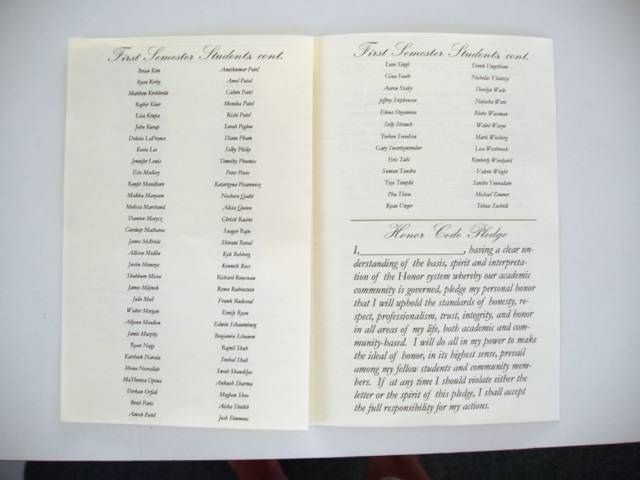 First Semester Students cont.
Brian Kim
Ryan Kirby
Matthew Kirkbride
Raghir Klair
Lisa Krepa
John Kurup
Kevin Lee
Jennifer Louis
Eric Mallory
Ranjit Mandham
Malika Manyam
Melissa Marchand
Damien Marycz
James McBride
Allison Mellin
Justin Monezis
Shubham Misra
James Mijnek
Julie Mool
Walter Morgan
Allyson Moulton
Jamie Murphy
Ryan Nagy
Kartheek Narala
Mona Nourollah
MaTheresa Opina
Dorhan Orfali
Brett Paris
Amish Patel
Amitkumar Patel
Amol Patel
Calvin Patel
Monika Patel
Rishi Patel
Sarah Peghee
Diane Pham
Sally Philip
Timothy Phoenix
Peter Ponte
Alicia Quinn
Christl Racini
Saagar Raju
Shivani Rattal
Kyle Rehberg
Kenneth Ross
Richard Rousseau
Renee Rubinstein
Frank Rudewal
Emily Ryan
Edwin Schaumburg
Benjamin Schumm
Rupal Shah
Snehal Shah
Swati Shandilya
Ankush Sharma
Meghan Shea
Aisha Sheikh
Josh Simmons
First Semester Students cont.
Love Singh
Gina South
Aaron Staley
Jeffrey Stephenson
Elena Stoyanova
Sally Strauch
Torben Svendsen
Gary Swartzentruber
Eric Tabi
Suman Tandra
Teja Tempalé
Phu Thieu
Ryan Unger
Derek Ungethiem
Nicholas Vilariza
Derelyn Wade
Natasha Ware
Blake Waseman
Walid Wasyi
Mark Weisberg
Lisa Westbrook
Kimberly Woodyard
Valerie Wright
Sandra Younadam
Michael Zimmer
Tobias Zuchelli
Honor Code Pledge
I,____________________, having a clear un-
derstanding of the basis, spirit and interpreta-
tion of the Honor system whereby our academic
community is governed, pledge my personal honor
that I will uphold the standards of honesty, re-
spect, professionalism, trust, integrity, and honor
in all areas of my life, both academic and com-
munity-based. I will do all in my power to make
the ideal of honor, in its highest sense, prevail
among my fellow students and community mem-
bers. If at any time I should violate either the
letter or the spirit of this pledge, I shall accept
the full responsibility for my actions.